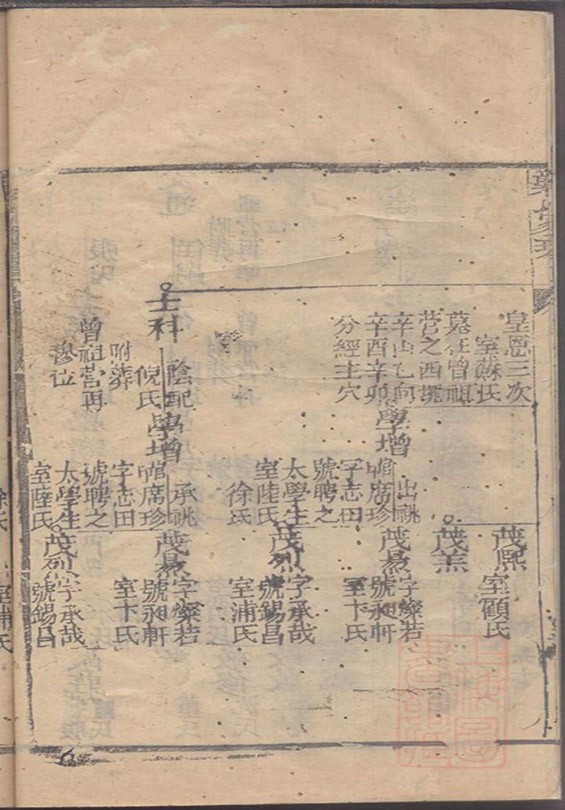 皇恩三次
室蘇氏
墓在曾祖
茔之酉
辛山乙向
辛酉辛卯
分經主穴
茂熙
室顧氏
茂羔
學增
出祧
館席珍
字志田
號聘之
太學生
室陸氏
徐氏
茂易
字燦若
號昶軒
室卞氏
茂烈
字承哉
號錫昌
室浦氏
士科
陰配
倪氏
附葬
曾祖茔再
穆位
學增
承祧
館席珍
字志田
號聘之
太學生
室陸氏
徐氏
茂易
字燦若
號昶軒
室卞氏
茂烈
字承哉
號錫昌
室浦氏